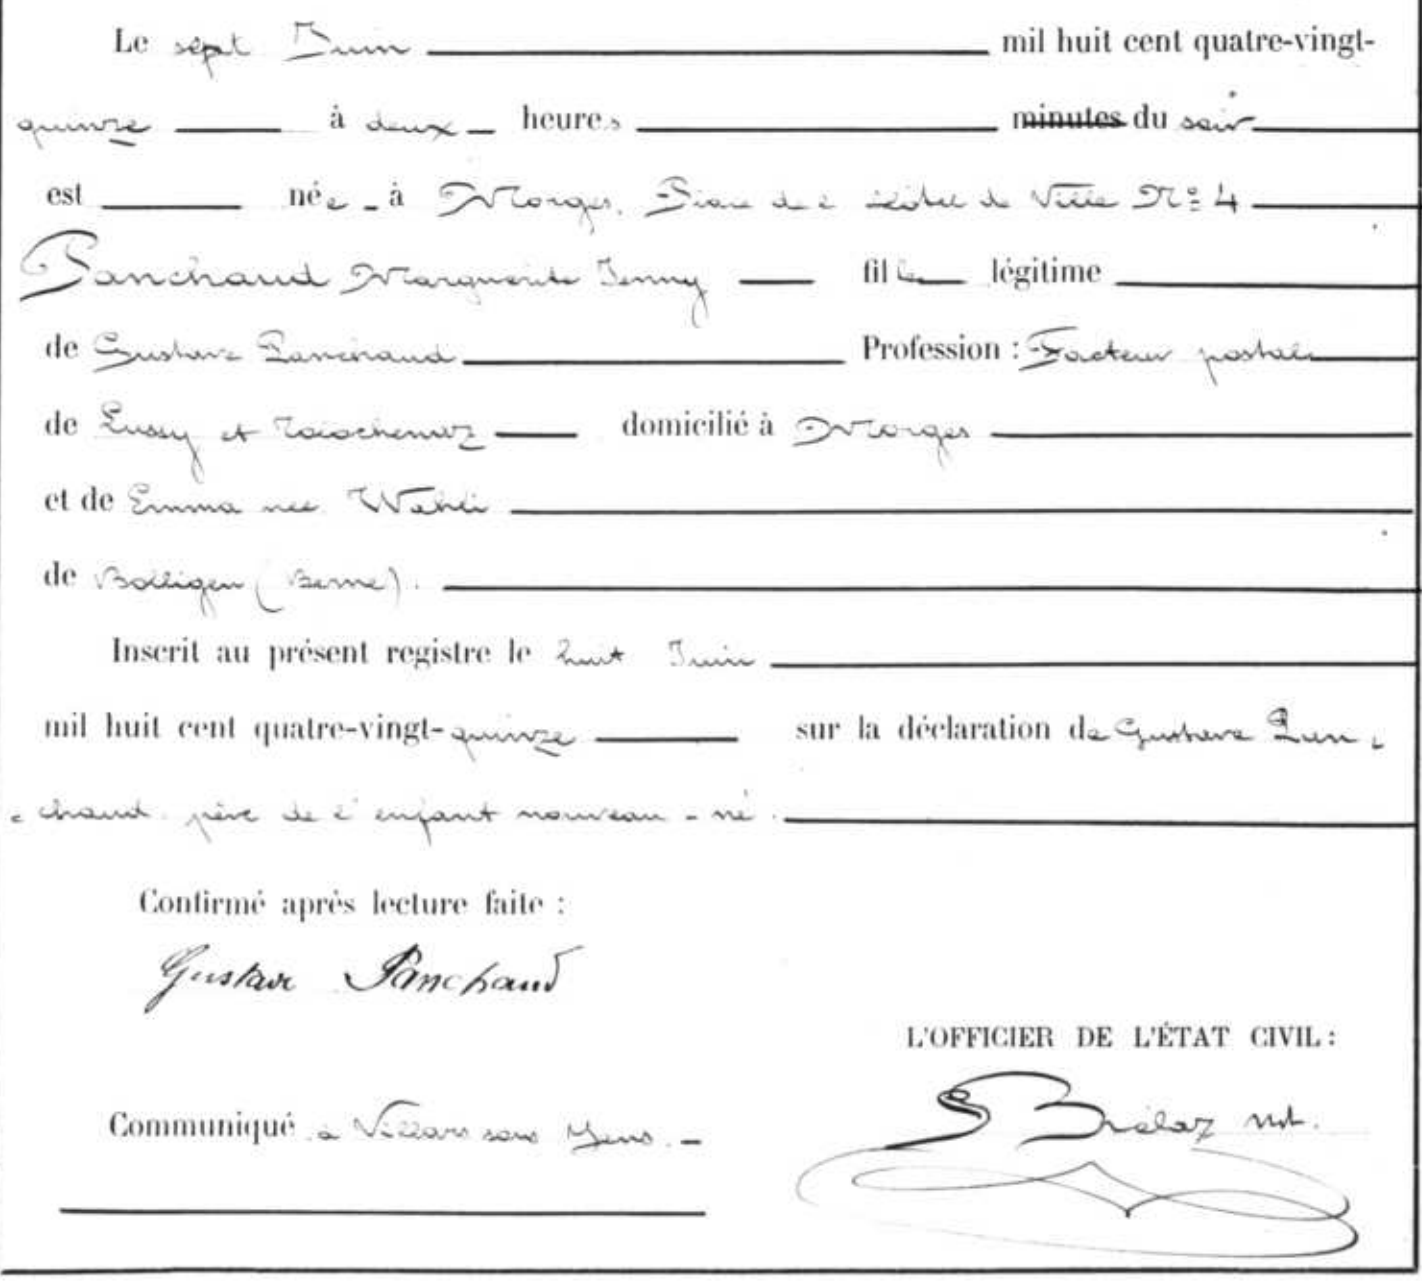 Le sept Juin mil huit cent quatre-vingt-
quinze à deux heures minutes du soir
est née à Morges, Place de l'Hôtel de Ville No 4
Panchaud Marguerite Jenny fille légitime
de Gustave Panchaud Profession : Facteur postal
de Lussy et Tolochenaz domicilié à Morges
et de Emma née Wehrli
de Bolligen (Berne).
Inscrit au présent registre le huit Juin
mil huit cent quatre-vingt-quinze sur la déclaration de Gustave Pan-
-chaud père de l'enfant nouveau-né.
Confirmé après lecture faite :
Gustave Panchaud
L'OFFICIER DE L'ÉTAT CIVIL :
Communiqué à Villars sous Yens. -
S Brélaz not.